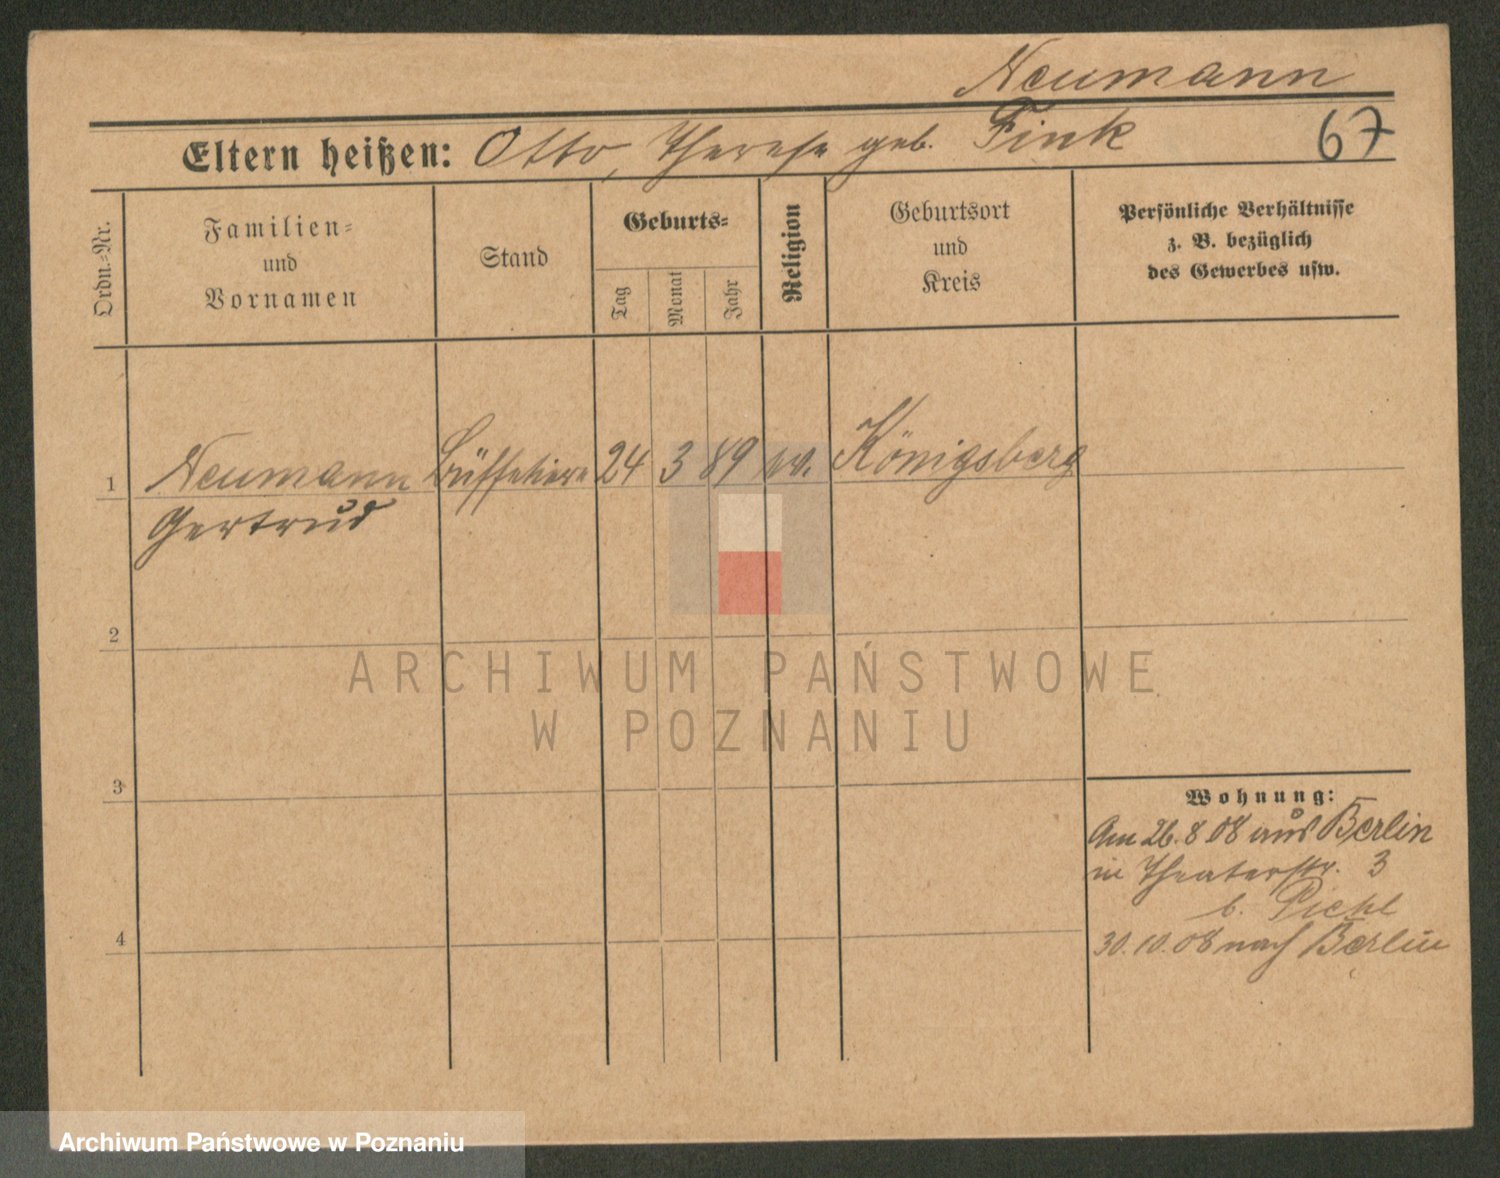 Neumann
Eltern heißen: Otto, Therese geb. Fink
67
Ordn.-Nr.
Familien-
und
Vornamen
Stand
Geburts-
Tag
Monat
Jahr
Religion
Geburtsort
und
Kreis
Persönliche Verhältnisse
z. B. bezüglich
des Gewerbes usw.
1 Neumann Büffetiere 24 3 89 Königsberg
Gertrud
2
3
4
Wohnung:
Am 26.8.08 aus Berlin
in Theaterstr. 3
b. Piehl
30.10.08 nach Berlin
ARCHIWUM PAŃSTWOWE
W POZNANIU
Archiwum Państwowe w Poznaniu